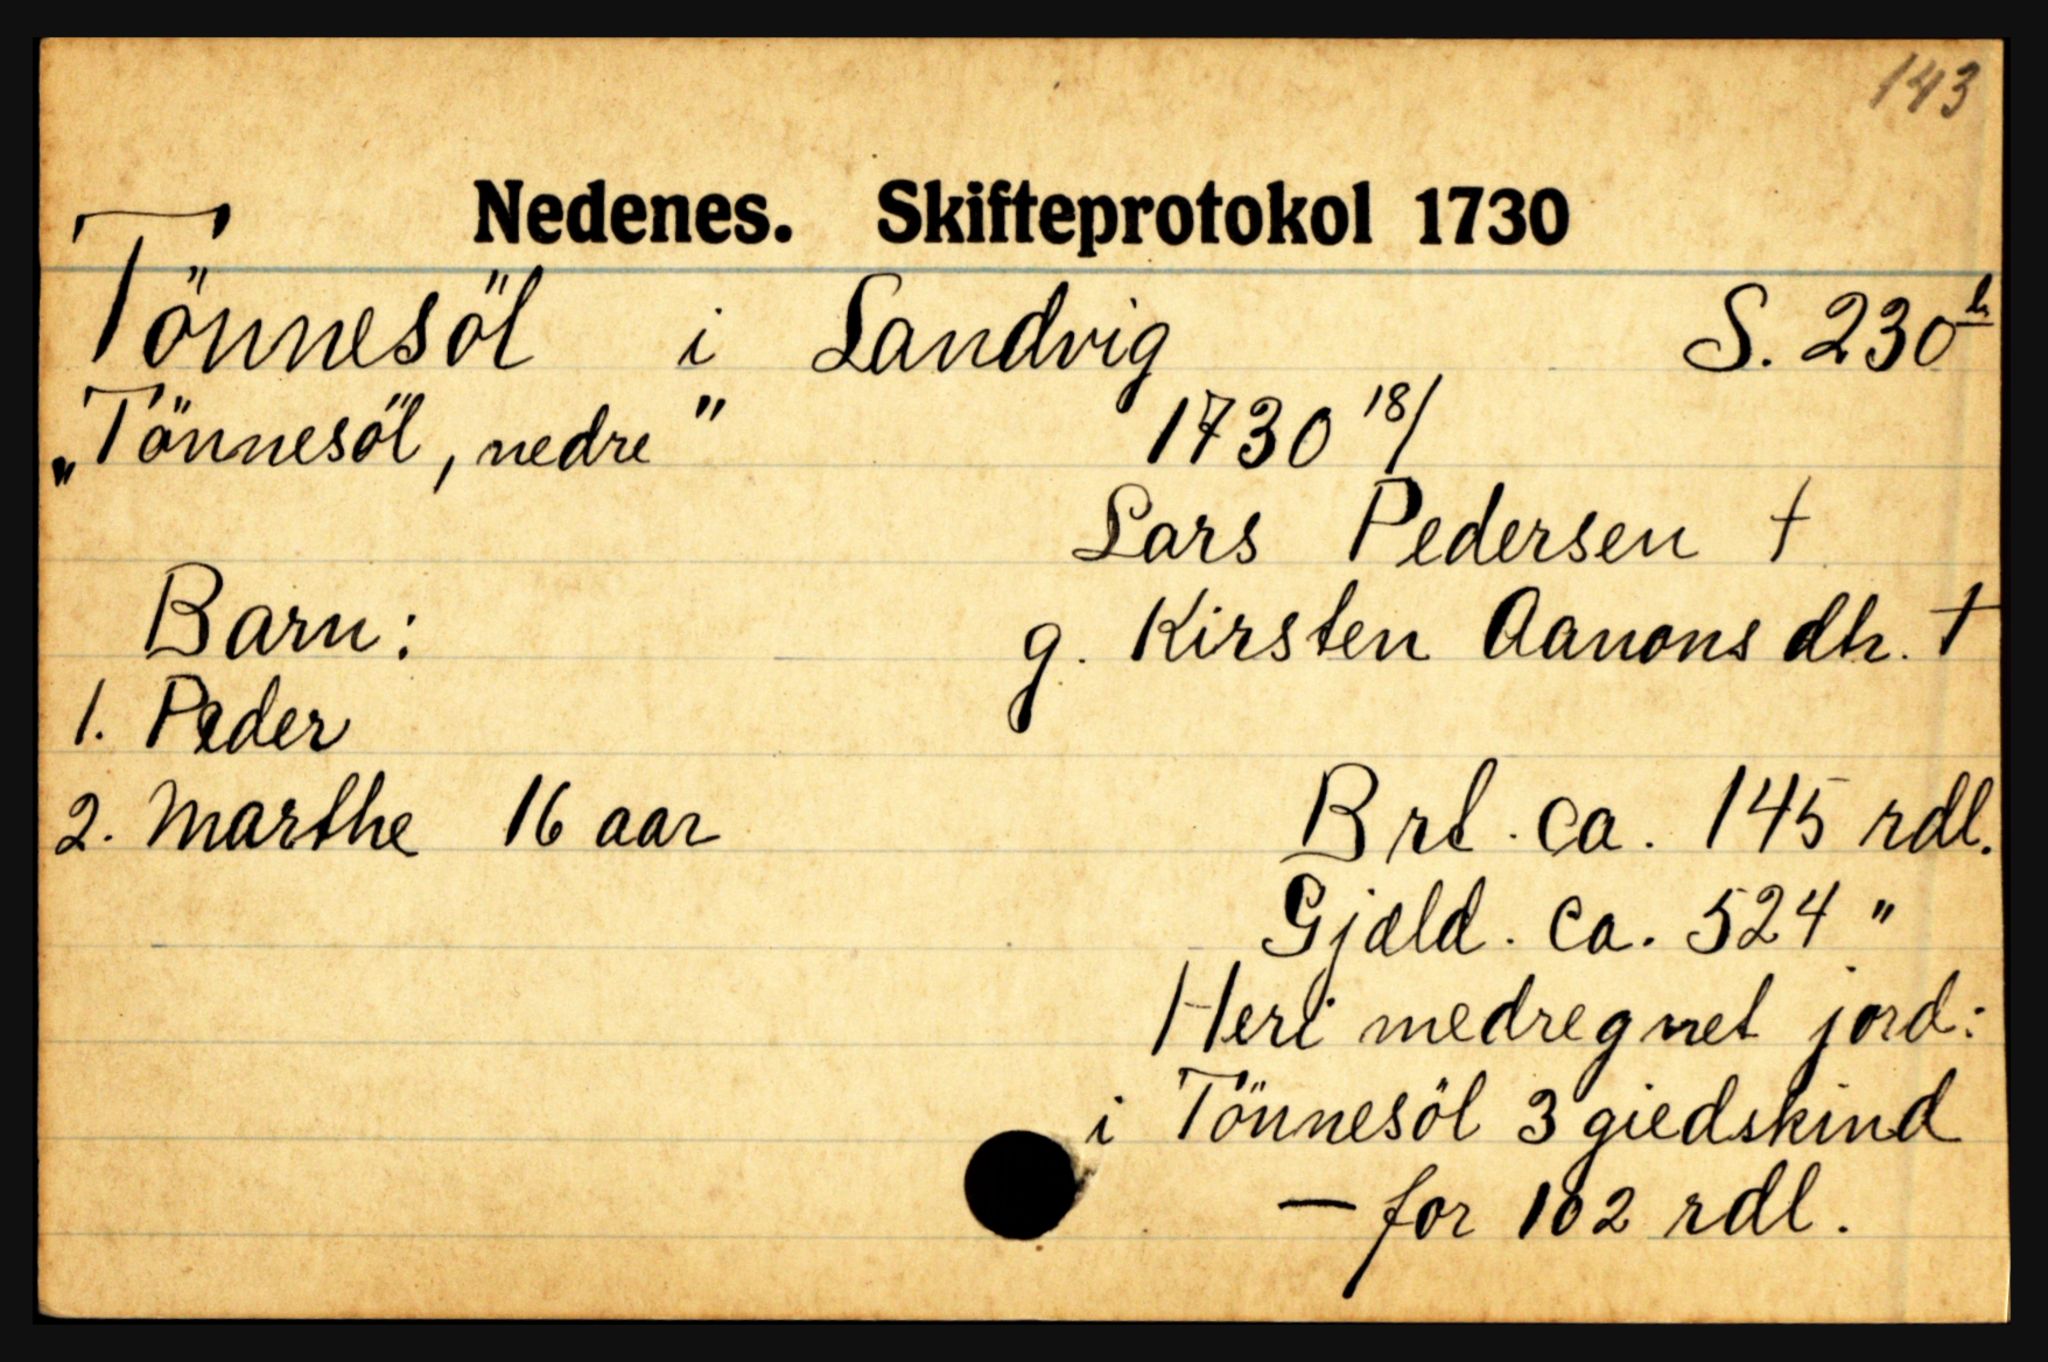 143
Nedenes. Skifteprotokol 1730
Tönnesöl i Landvig S. 230b
„Tönnesöl, nedre" 1730 18/
Lars Pedersen †
Barn: g. Kirsten Aanonsdtr. †
1. Peder
2. Marthe 16 aar Brt. ca. 145 rdl.
Gjæld. ca. 524 "
Heri medregnet jord:
i Tönnesöl 3 giedskind
— for 102 rdl.